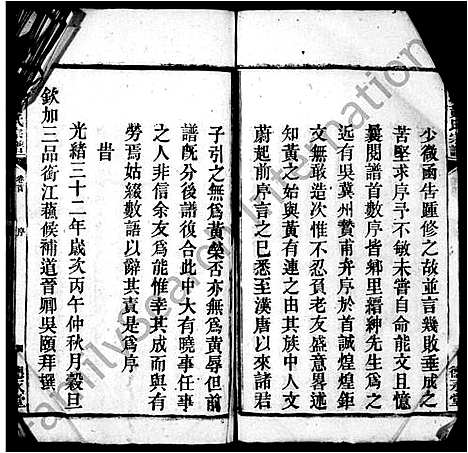 少徵函告踵修之故並言幾敗垂成之
苦堅求序予不敏未嘗自命能文且憶
曩閱譜首數序皆鄉里縉紳先生為之
近有吳冀州贊甫弁序於首誠煌煌鉅
文無敢造次惟不忍負老友盛意畧述
知黃之始與黃有連之由其族中人文
蔚起前序言之已悉至漢唐以來諸君
子引之無為黃榮否亦無為黃辱但前
譜既分後譜復合此中大有曉事任事
之人非信余友為能惟幸其成而與有
勞焉姑綴數語以辭其責是為序
旹
光緒三十二年歲次丙午仲秋月穀旦
欽加三品銜江蘇候補道晉卿吳頤拜撰
序
德永堂
FamilySearch International